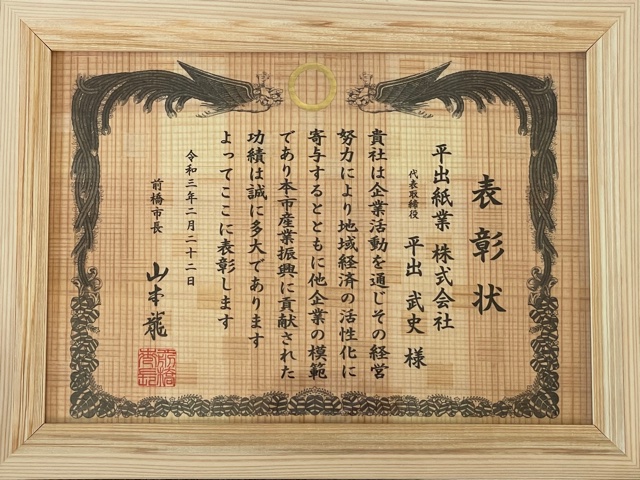 表彰状
平出紙業 株式会社
代表取締役 平出 武史 様
貴社は企業活動を通じその経営
努力により地域経済の活性化に
寄与するとともに他企業の模範
であり本市産業振興に貢献された
功績は誠に多大であります
よってここに表彰します
令和三年二月二十二日
前橋市長 山本龍